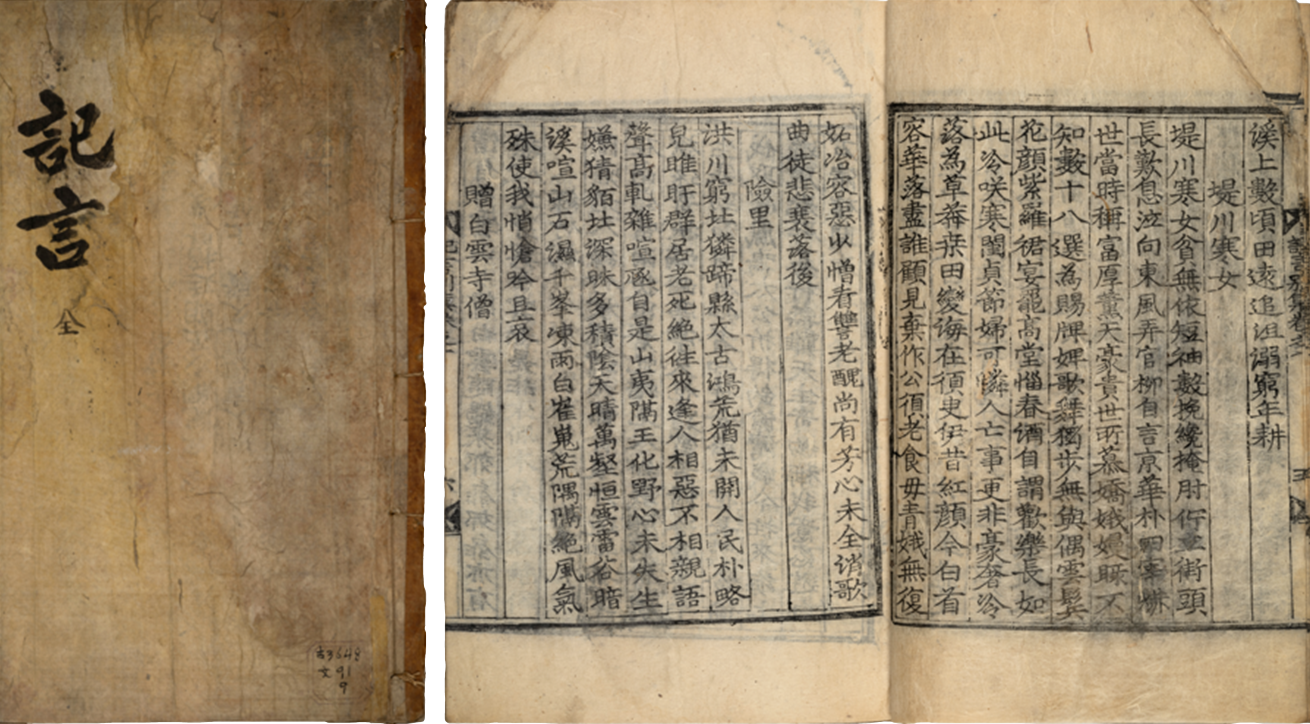 記言
全
古3648
文91
9
溪上數頃田遠追沮溺窮年耕
堤川寒女
堤川寒女貧無依短袖數挽纔掩肘佇立街頭
長歎息泣向東風弄官柳自言京華朴四宰
世當時稱富厚薰天豪貴世所慕嬌娥嫚睩不
知數十八選為賜牌婢歌舞獨步無與偶雲鬢
花顏紫羅裙宴罷高堂惱春酒自謂歡樂長如
此冷咲寒閨貞節婦可憐人亡事更非豪奢冷
落為草莽桑田變海在須臾伊昔紅顏今白首
容華落盡誰顧見棄作公須老食母青娥無復
妬冶容惡少憎看讐老醜尚有芳心未全消歌
曲徒悲衰落後
險里
洪川窮址獜蹄縣太古鴻荒猶未開人民朴略
兒睢盱群居老死絕徃來逢人相惡不相親語
聲高軋雜喧豗自是山夷隔王化野心未失生
嫌猜貊址深昧多積陰天晴萬壑恒雲雷谷暗
溪喧山石濕千峯凍雨白崔嵬荒隅隔絕風氣
殊使我悄愴吟且哀
贈白雲寺僧